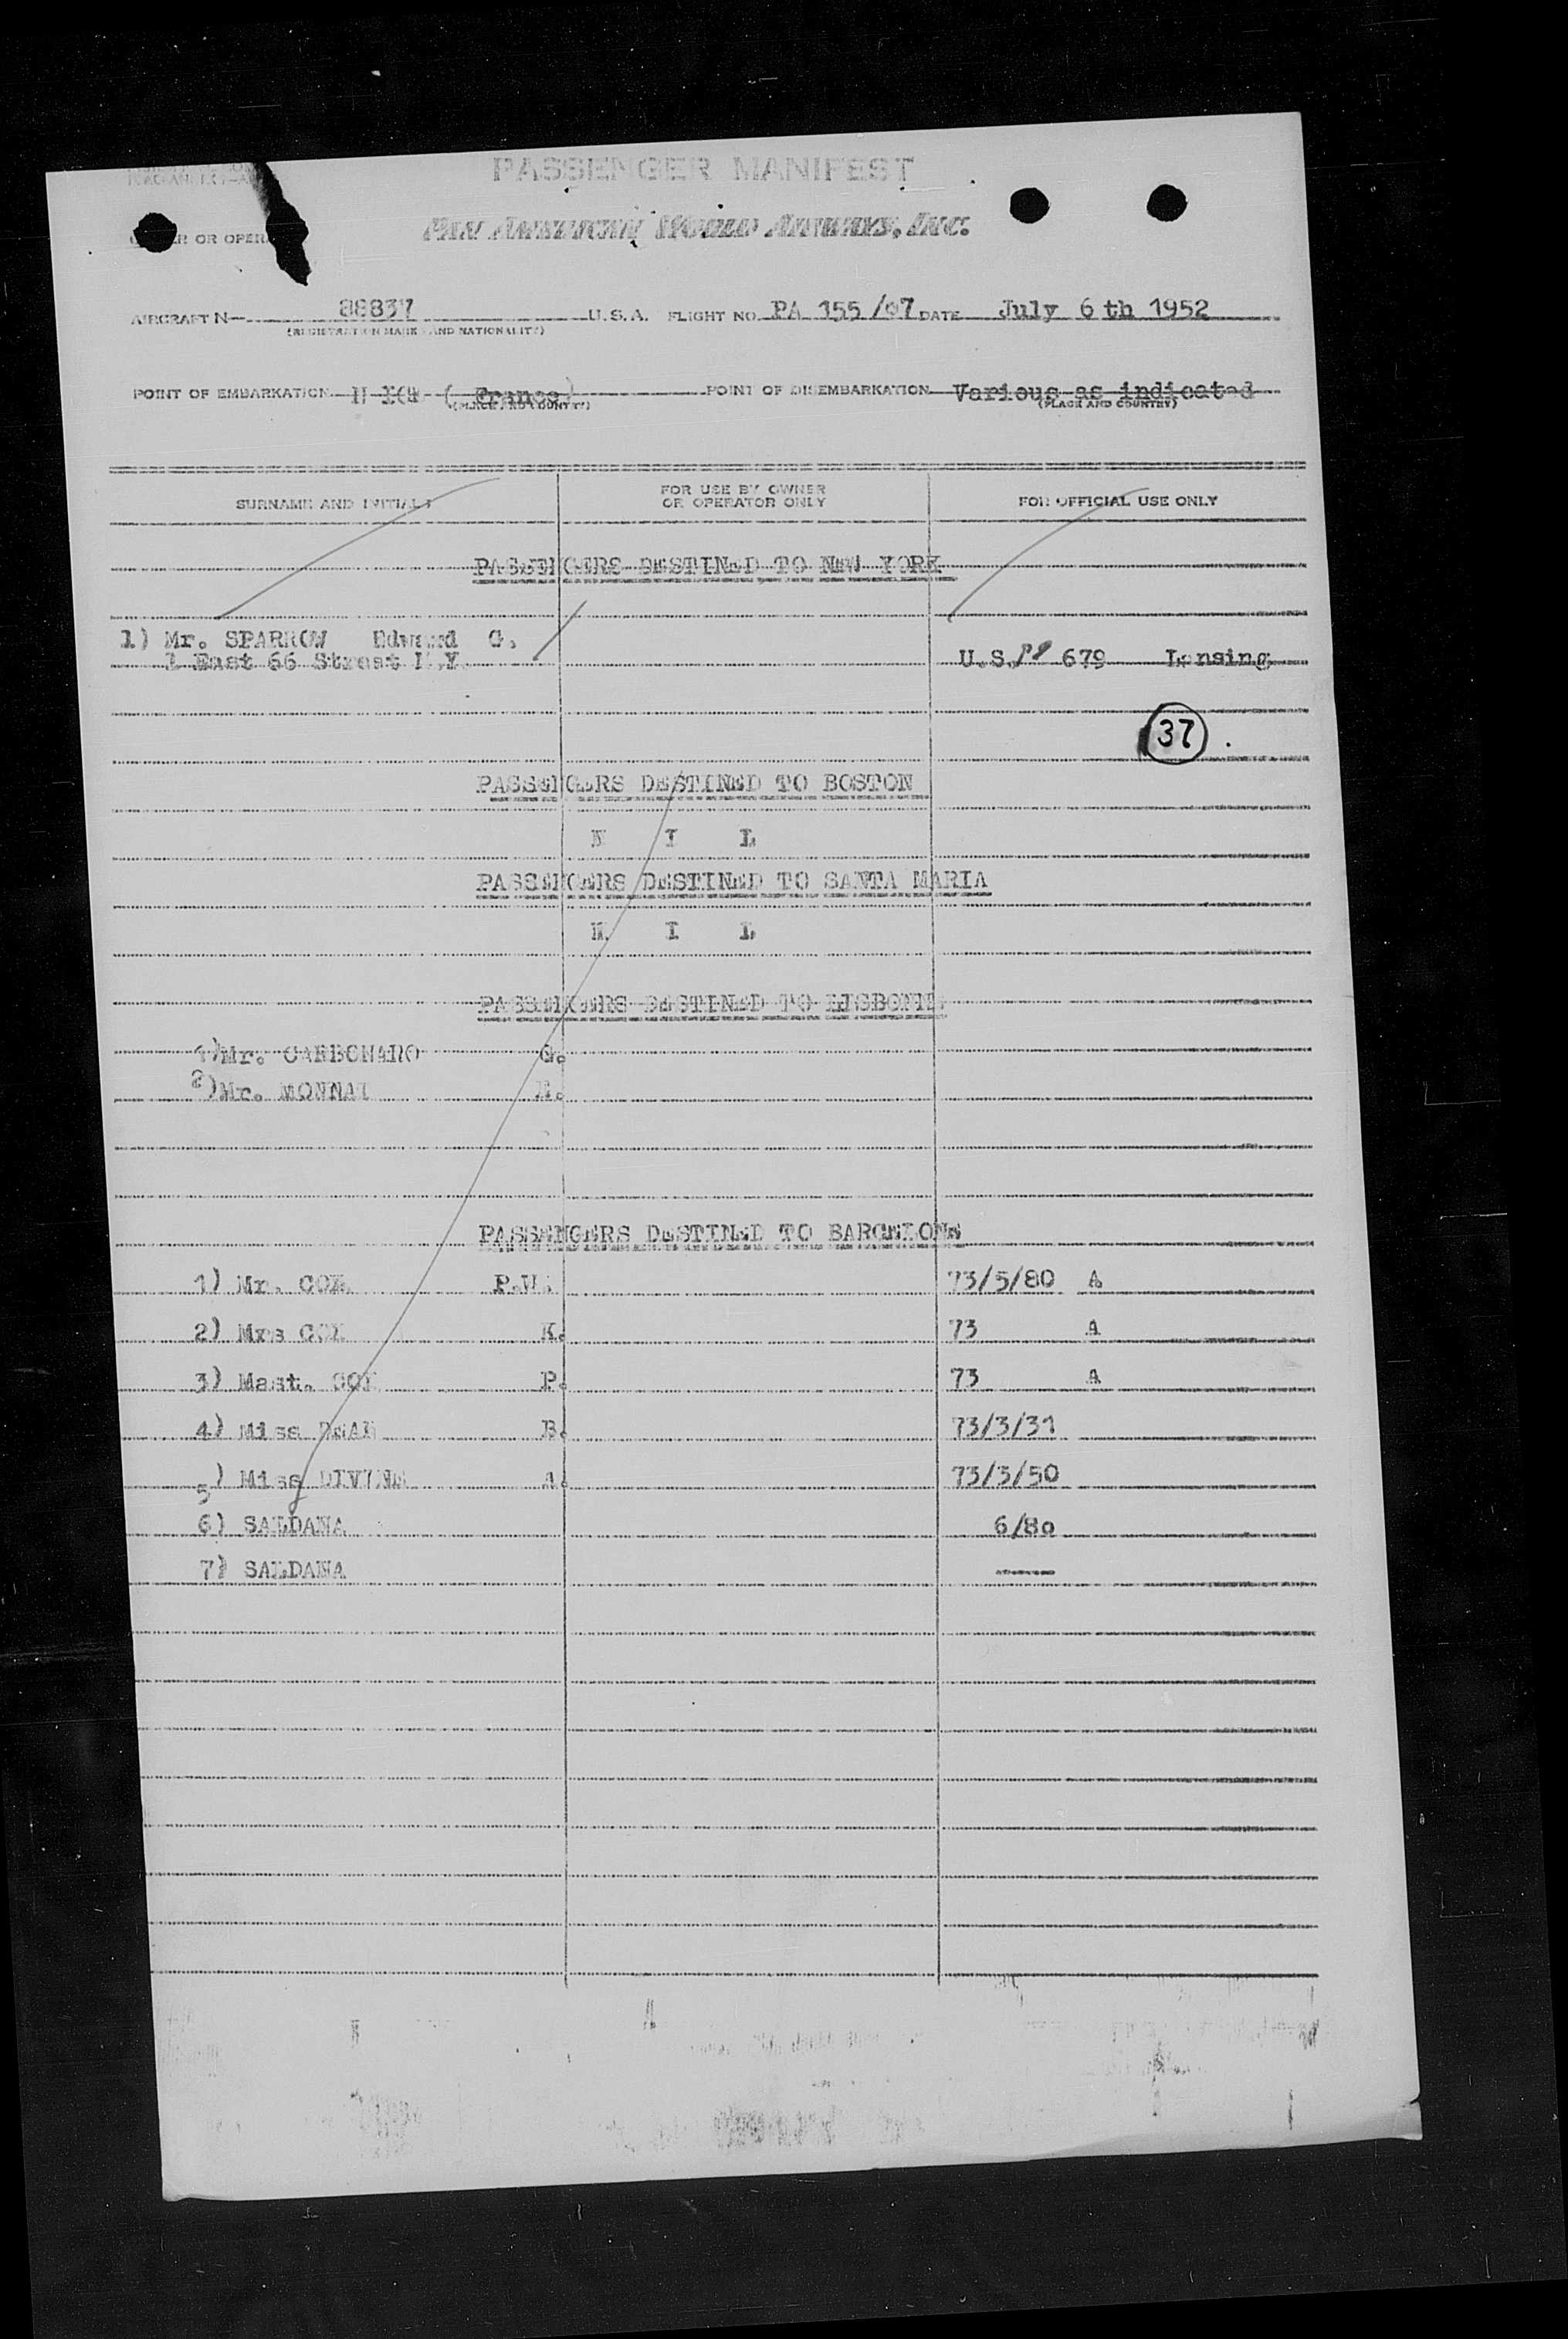 PASSENGER MANIFEST
PAN AMERICAN WORLD AIRWAYS, INC.
AIRCRAFT N- 88837 U.S.A. FLIGHT NO. PA 155/07 DATE July 6 th 1952
(REGISTRATION MARK AND NATIONALITY)
POINT OF EMBARKATION ( France) POINT OF DISEMBARKATION Various as indicated
(PLACE AND COUNTRY) (PLACE AND COUNTRY)
SURNAME AND INITIALS
FOR USE BY OWNER
OR OPERATOR ONLY
FOR OFFICIAL USE ONLY
PASSENGERS DESTINED TO NEW YORK
1) Mr. SPARROW Edward G.
1 East 66 Street N.Y. U.S. 679 Lansing
37
PASSENGERS DESTINED TO BOSTON
N I L
PASSENGERS DESTINED TO SANTA MARIA
N I L
PASSENGERS DESTINED TO LISBONNE
1)Mr. CARBONARO G.
2)Mr. MONNAT
PASSENGERS DESTINED TO BARCELONE
1) Mr. COX 73/5/80 A
2) Mrs COX K. 73 A
3) Mast. COX P. 73 A
4) Miss B. 73/3/31
5) Miss DIVINE A. 73/3/50
6) SALDANA 6/80
7) SALDANA -----